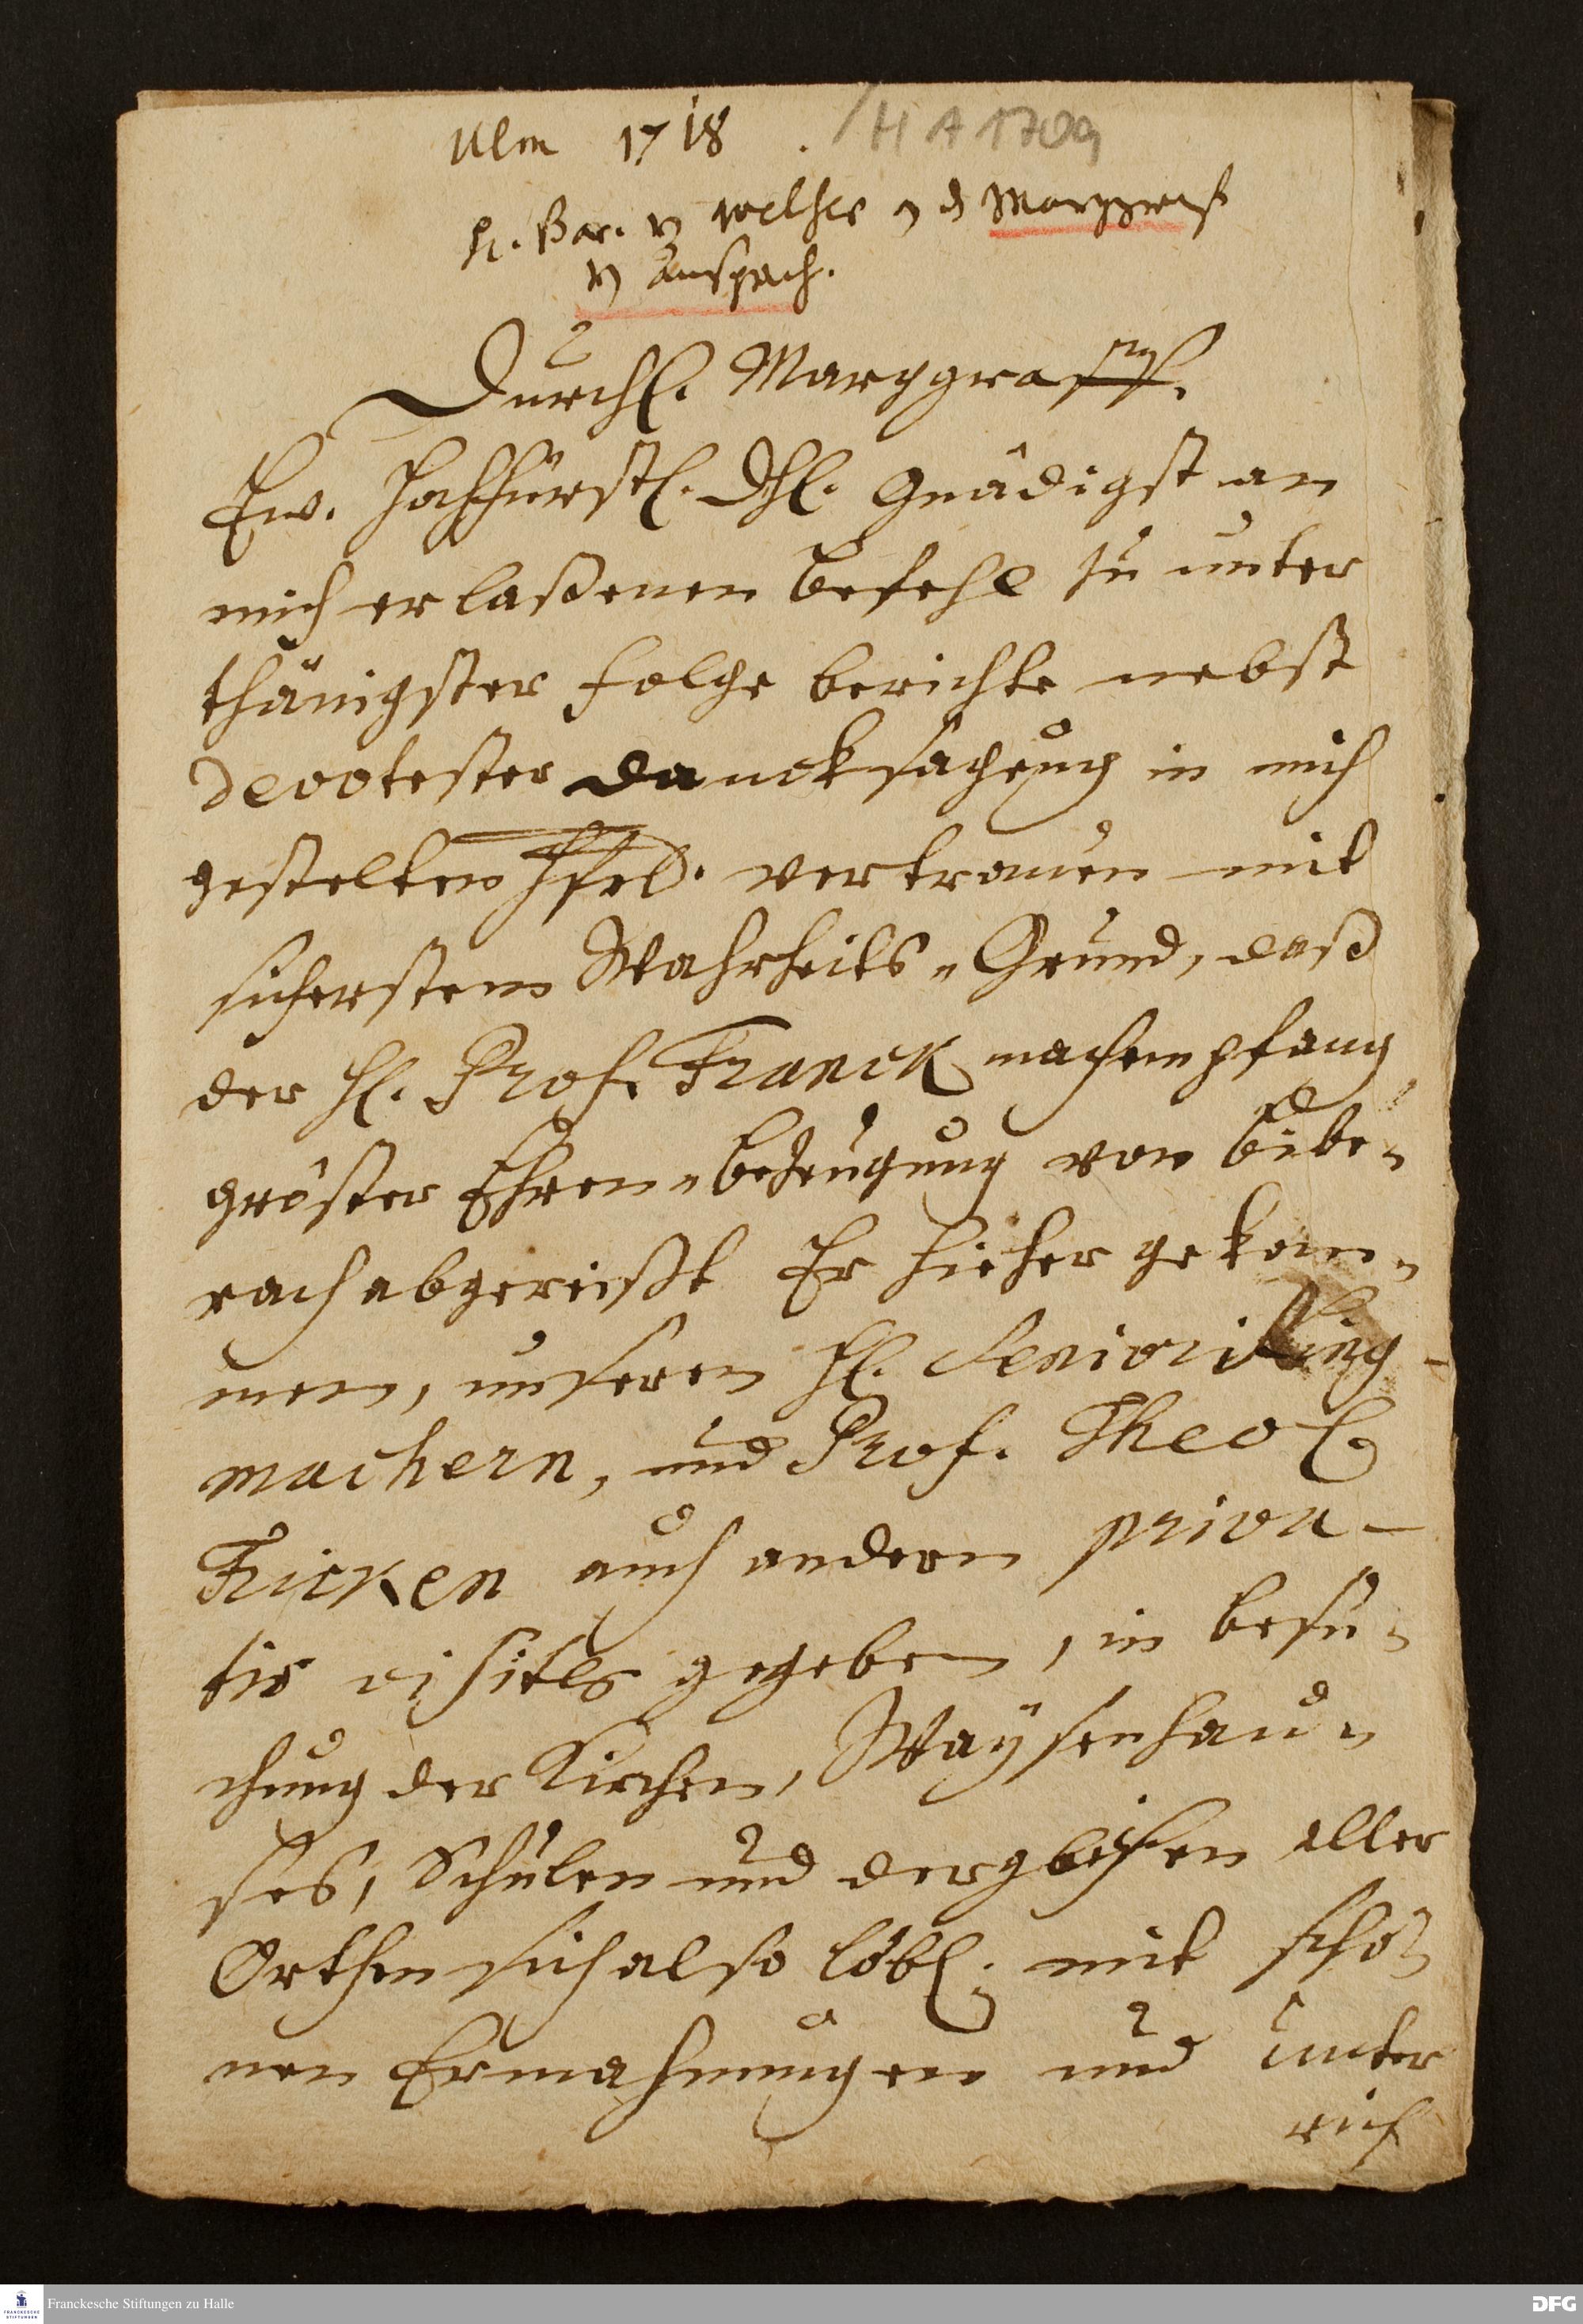 Ulm 1718. H A 170g
H. Bar. v Welser a d Marggraf
v Anspach.
Durchl. Marggraff.
Ew. Hochfürstl. Dhl. gnädigst an
mich erlaßenen Befehl zu unter
thänigster folge berichte nebst
devotester dancksagung in mich
gestelten vertrauen mit
sicherstem Wahrheits-Grund, daß
der H. Prof. Franck nach empfang
gröster Ehren-Bezeugung von Bibe-
rach abgereißt Er hieher gekom-
men, unserem H. Seniori
machern, und Prof. Theol.
Fricken auch andern priva-
tis visites gegeben, in besu-
chung der Kirchen, Waysenhau-
ses, Schulen und dergleichen aller
Orthen sich also löbl. mit schö-
nen Ermahnungen und unter
rich
Franckesche Stiftungen zu Halle
DFG